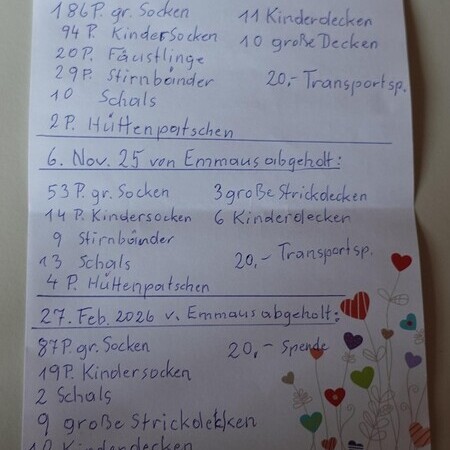 186 P. gr. Socken 11 Kinderdecken
94 P. Kindersocken 10 große Decken
20 P. Fäustlinge
29 P. Stirnbänder 20,- Transportsp.
10 Schals
2 P. Hüttenpatschen
6. Nov. 25 von Emmaus abgeholt:
53 P. gr. Socken 3 große Strickdecken
14 P. Kindersocken 6 Kinderdecken
9 Stirnbänder
13 Schals 20,- Transportsp.
4 P. Hüttenpatschen
27. Feb. 2026 v. Emmaus abgeholt:
87 P. gr. Socken 20,- Spende
19 P. Kindersocken
2 Schals
9 große Strickdecken
10 Kinderdecken